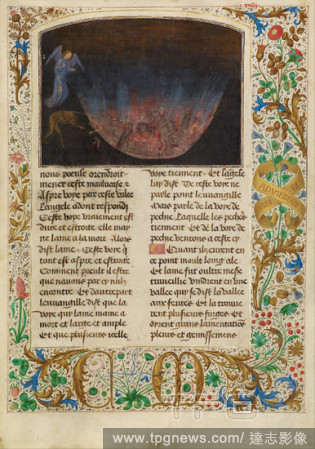 nous poeult orendroit
mener ceste mauvaise
Aspre voye par ceste valee
Langele adont respondi
Ceste voye vraiement est
dure et estroite elle may
ne lame a la mort Alors
dist lame Ceste voye q̄
tant est aspre et estroite
Comment poeult il estre
que nauons par cy nulz
encontre Et dautre part
leuuangille dist que la
voye qui lame maine a
mort et large et ample
Et que plusieurs
voye tiennent Et langele
luy dist De ceste voye ne
parle point leuuangille
Mais parle de la voye de
pechie Laquelle les pechie
tiennent Et de la voie
de pechie venrons a ceste cy
Quant ilz eurent en
ce point moult longtemps ale
Et lame fut oultre mesure
traueillie vindrent en vne
vallee qui se dist la vallee
aux feures Et la trouue
rent plusieurs forges Et
oyrent grans lamentations
pleurs et gemissemens
www.tpgnews.com/達志影像